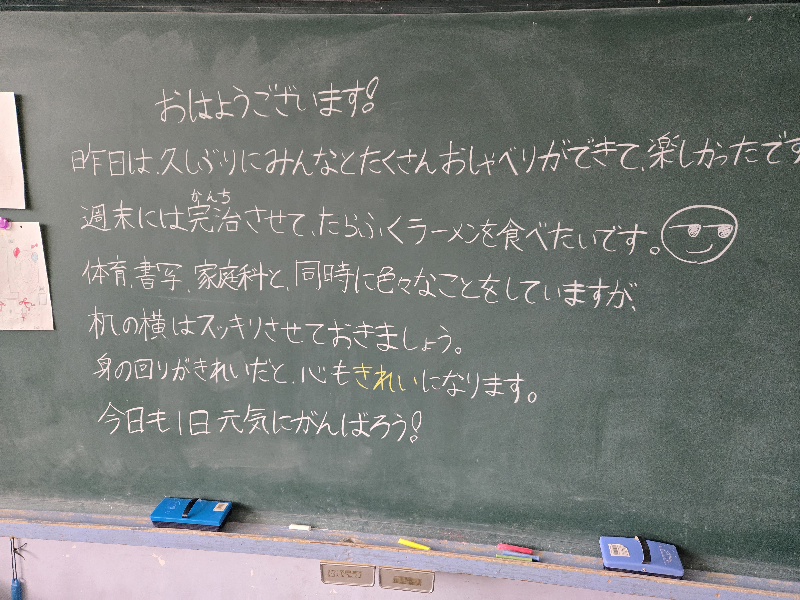 おはようございます!
昨日は、久しぶりにみんなとたくさんおしゃべりができて、楽しかったです
週末には完治させて、たらふくラーメンを食べたいです。
かんち
体育、書写、家庭科と、同時に色々なことをしていますが、
机の横はスッキリさせておきましょう。
身の回りがきれいだと、心もきれいになります。
今日も1日元気にがんばろう!